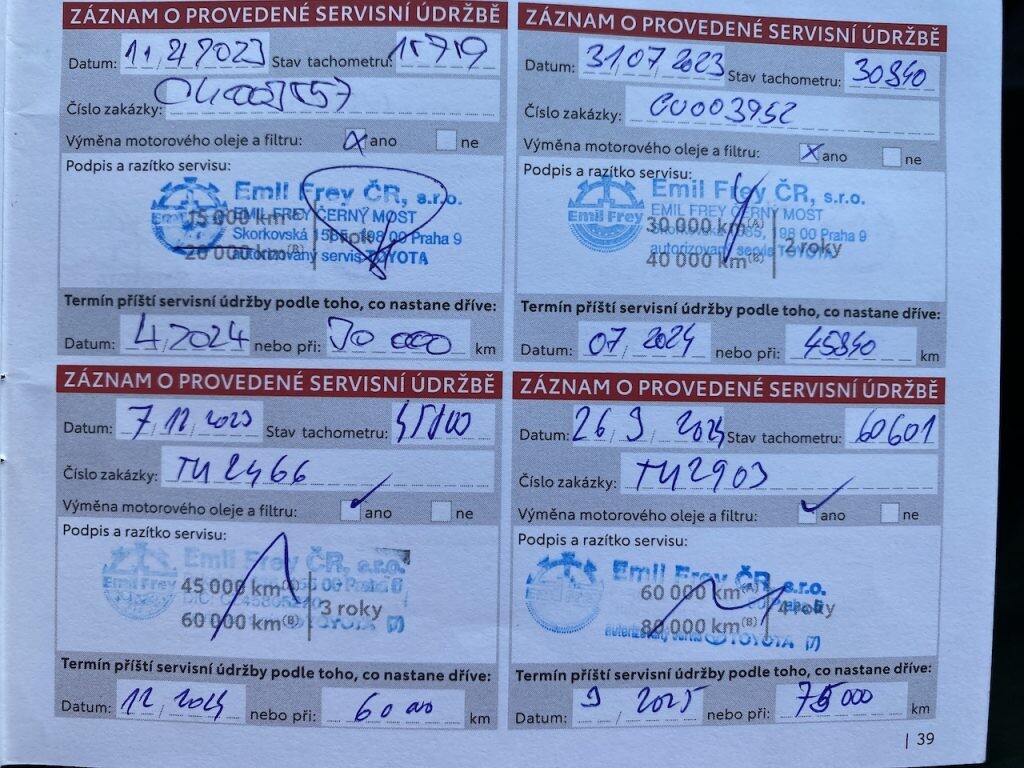 ZÁZNAM O PROVEDENÉ SERVISNÍ ÚDRŽBĚ
Datum: 11/4/2023 Stav tachometru: 15719
Číslo zakázky:
Výměna motorového oleje a filtru: x ano ne
Podpis a razítko servisu:
Emil Frey ČR, s.r.o.
EMIL FREY ČERNÝ MOST
15 000 km
Skorkovská 1565, 198 00 Praha 9
1 rok
autorizovaný servis TOYOTA
20 000 km(B)
Termín příští servisní údržby podle toho, co nastane dříve:
Datum: 4/2024 nebo při: 30 000 km
ZÁZNAM O PROVEDENÉ SERVISNÍ ÚDRŽBĚ
Datum: 31/07/2023 Stav tachometru: 30840
Číslo zakázky: CU003952
Výměna motorového oleje a filtru: x ano ne
Podpis a razítko servisu:
Emil Frey ČR, s.r.o.
Emil Frey
EMIL FREY ČERNÝ MOST
30 000 km(A)
Skorkovská 1565, 198 00 Praha 9
2 roky
autorizovaný servis TOYOTA
40 000 km(B)
Termín příští servisní údržby podle toho, co nastane dříve:
Datum: 07/2024 nebo při: 45840 km
ZÁZNAM O PROVEDENÉ SERVISNÍ ÚDRŽBĚ
Datum: 7/12/2023 Stav tachometru:
Číslo zakázky: TU2466
Výměna motorového oleje a filtru: ✓ ano ne
Podpis a razítko servisu:
Emil Frey ČR, s.r.o.
Emil Frey
45 000 km(A)
3 roky
60 000 km(B)
TOYOTA (7)
Termín příští servisní údržby podle toho, co nastane dříve:
Datum: 12/2024 nebo při: 60 000 km
ZÁZNAM O PROVEDENÉ SERVISNÍ ÚDRŽBĚ
Datum: 26/9/2024 Stav tachometru: 60601
Číslo zakázky: TU2903
Výměna motorového oleje a filtru: ✓ ano ne
Podpis a razítko servisu:
Emil Frey ČR, s.r.o.
Emil Frey
60 000 km(A)
4 roky
80 000 km(B)
TOYOTA (7)
Termín příští servisní údržby podle toho, co nastane dříve:
Datum: 9/2025 nebo při: 75 000 km
| 39